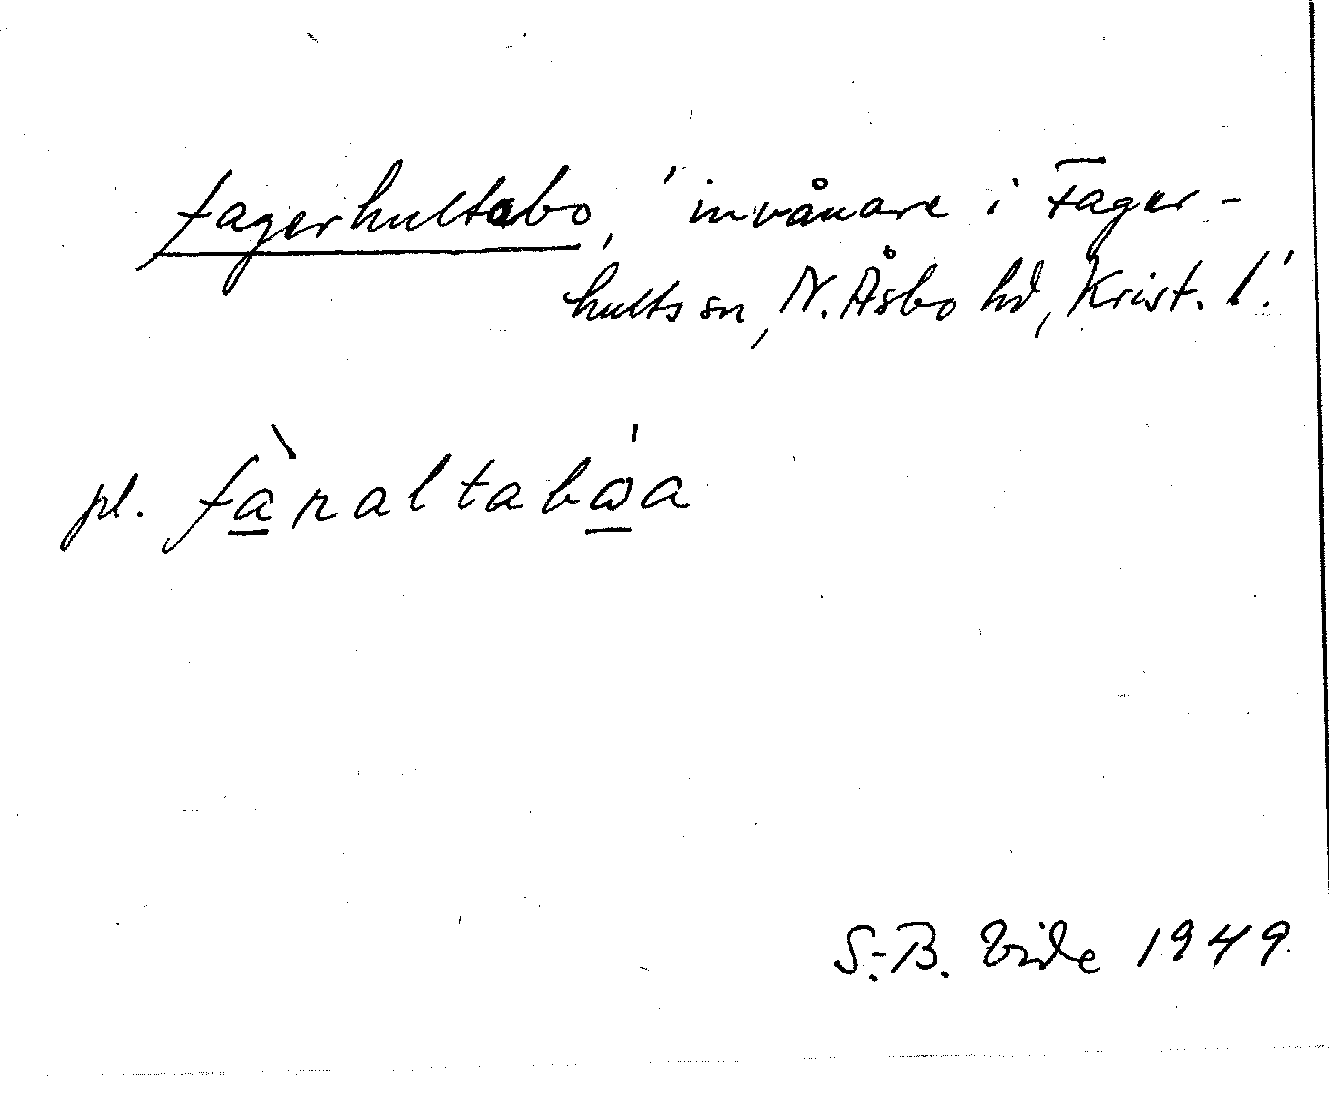 fagerhultabo, 'invånare i Fager-
hults sn, N. Åsbo hd, Krist. l.'
pl. fàraltabωa
S.-B. Vide 1949